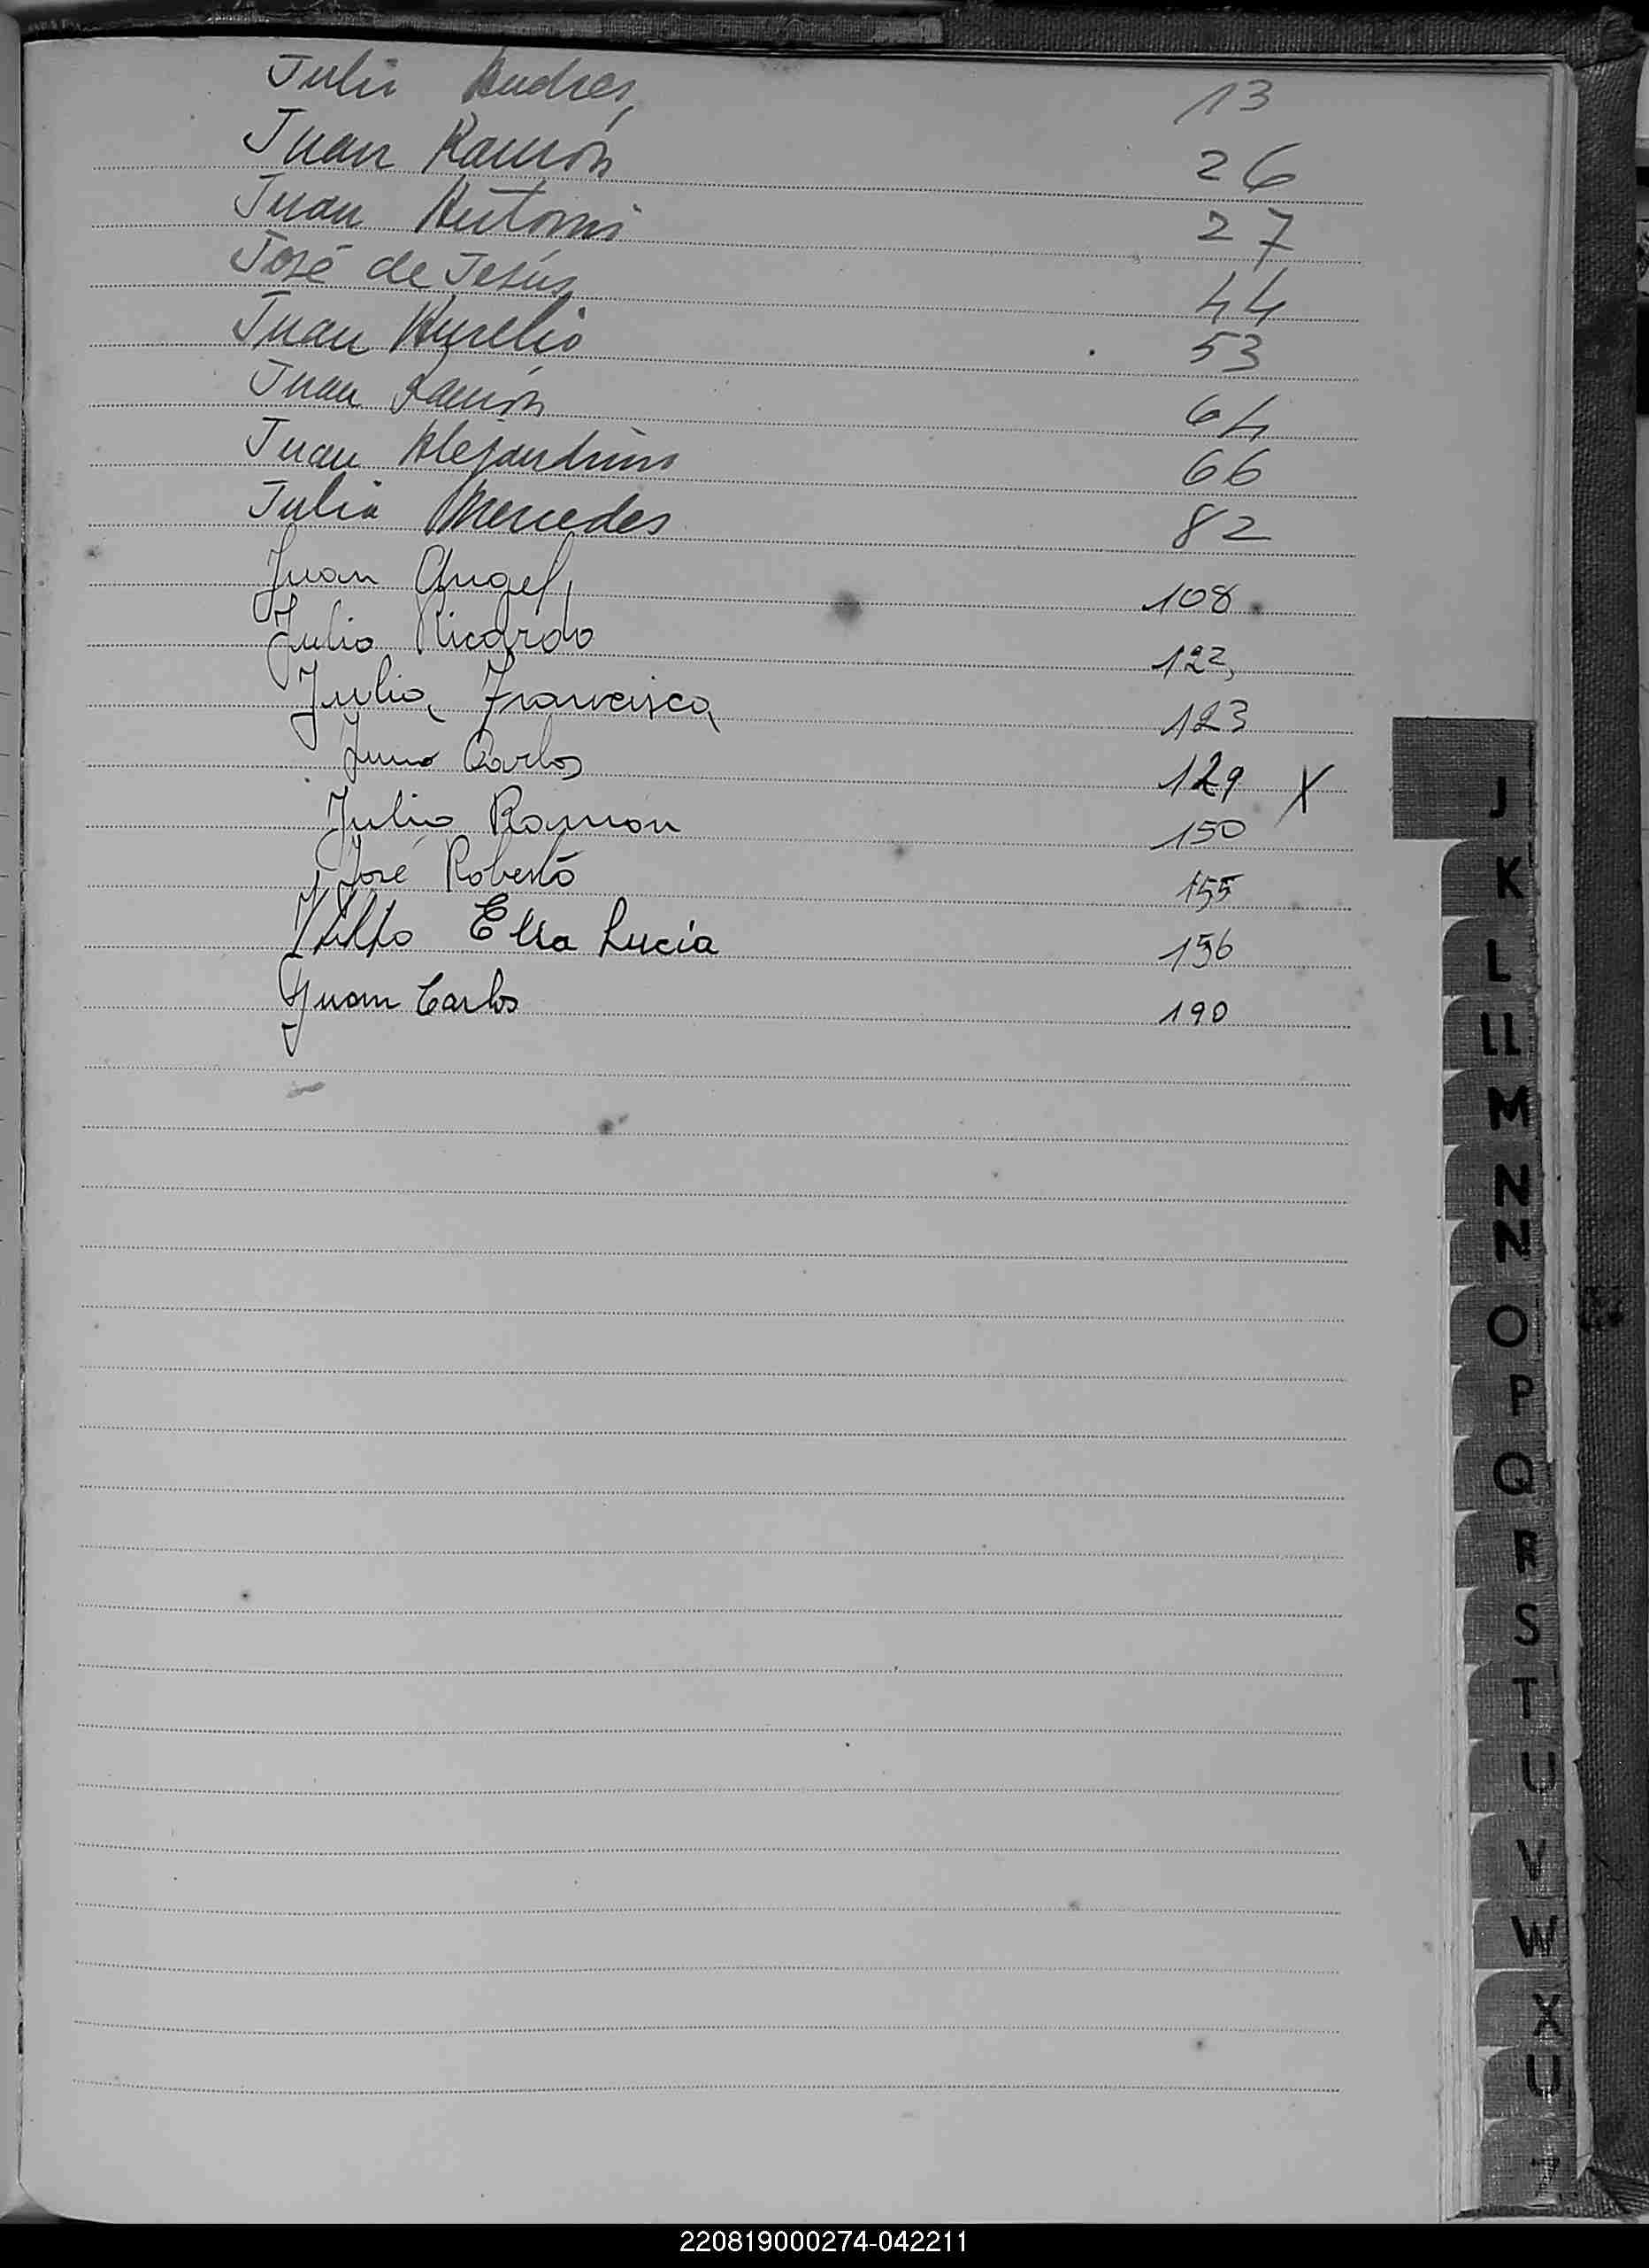 Julio Andrés, 13
Juan Ramón 26
Juan Antonio 27
José de Jesús 44
Juan Aurelio 53
Juan Ramón 64
Juan Alejandrino 66
Julia Mercedes 82
Juan Angel, 108
Julio Ricardo 122,
Julia Francisca 123
Carlos 129 X
Julio Ramon 150
José Roberto 155
Elsa Lucía 156
Juan Carlos 190
J
K
L
LL
M
N
N
O
P
Q
R
S
T
U
V
W
X
U
220819000274-042211